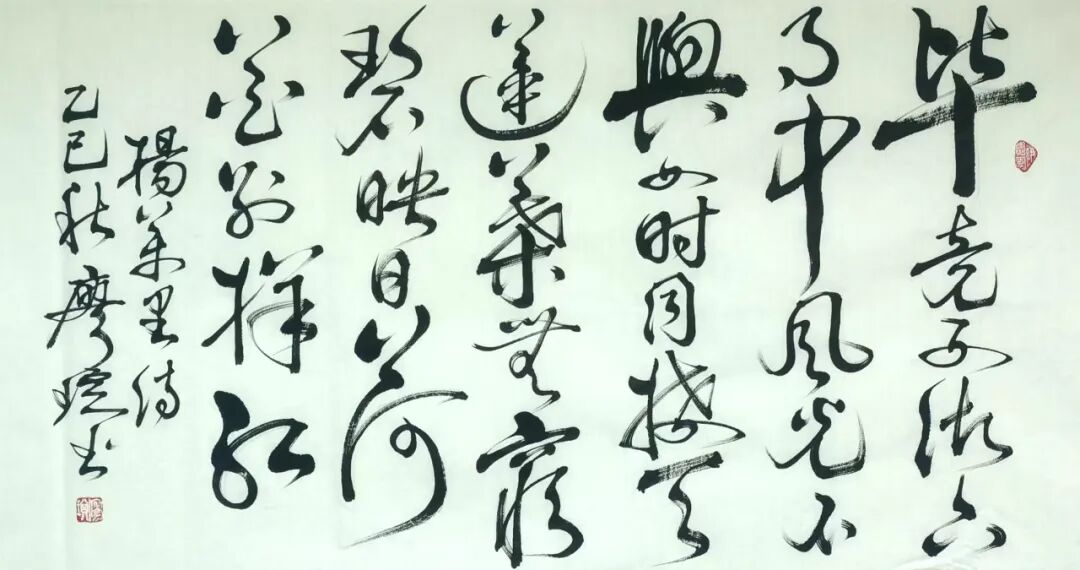 毕竟西湖六
月中风光不
與四时同接天
莲葉無窮
碧映日荷
花别样红
楊万里诗
乙巳秋廖书